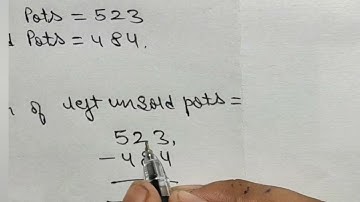 Pots = 523
Pots = 484.
of left unsold pots =
523,
- 484